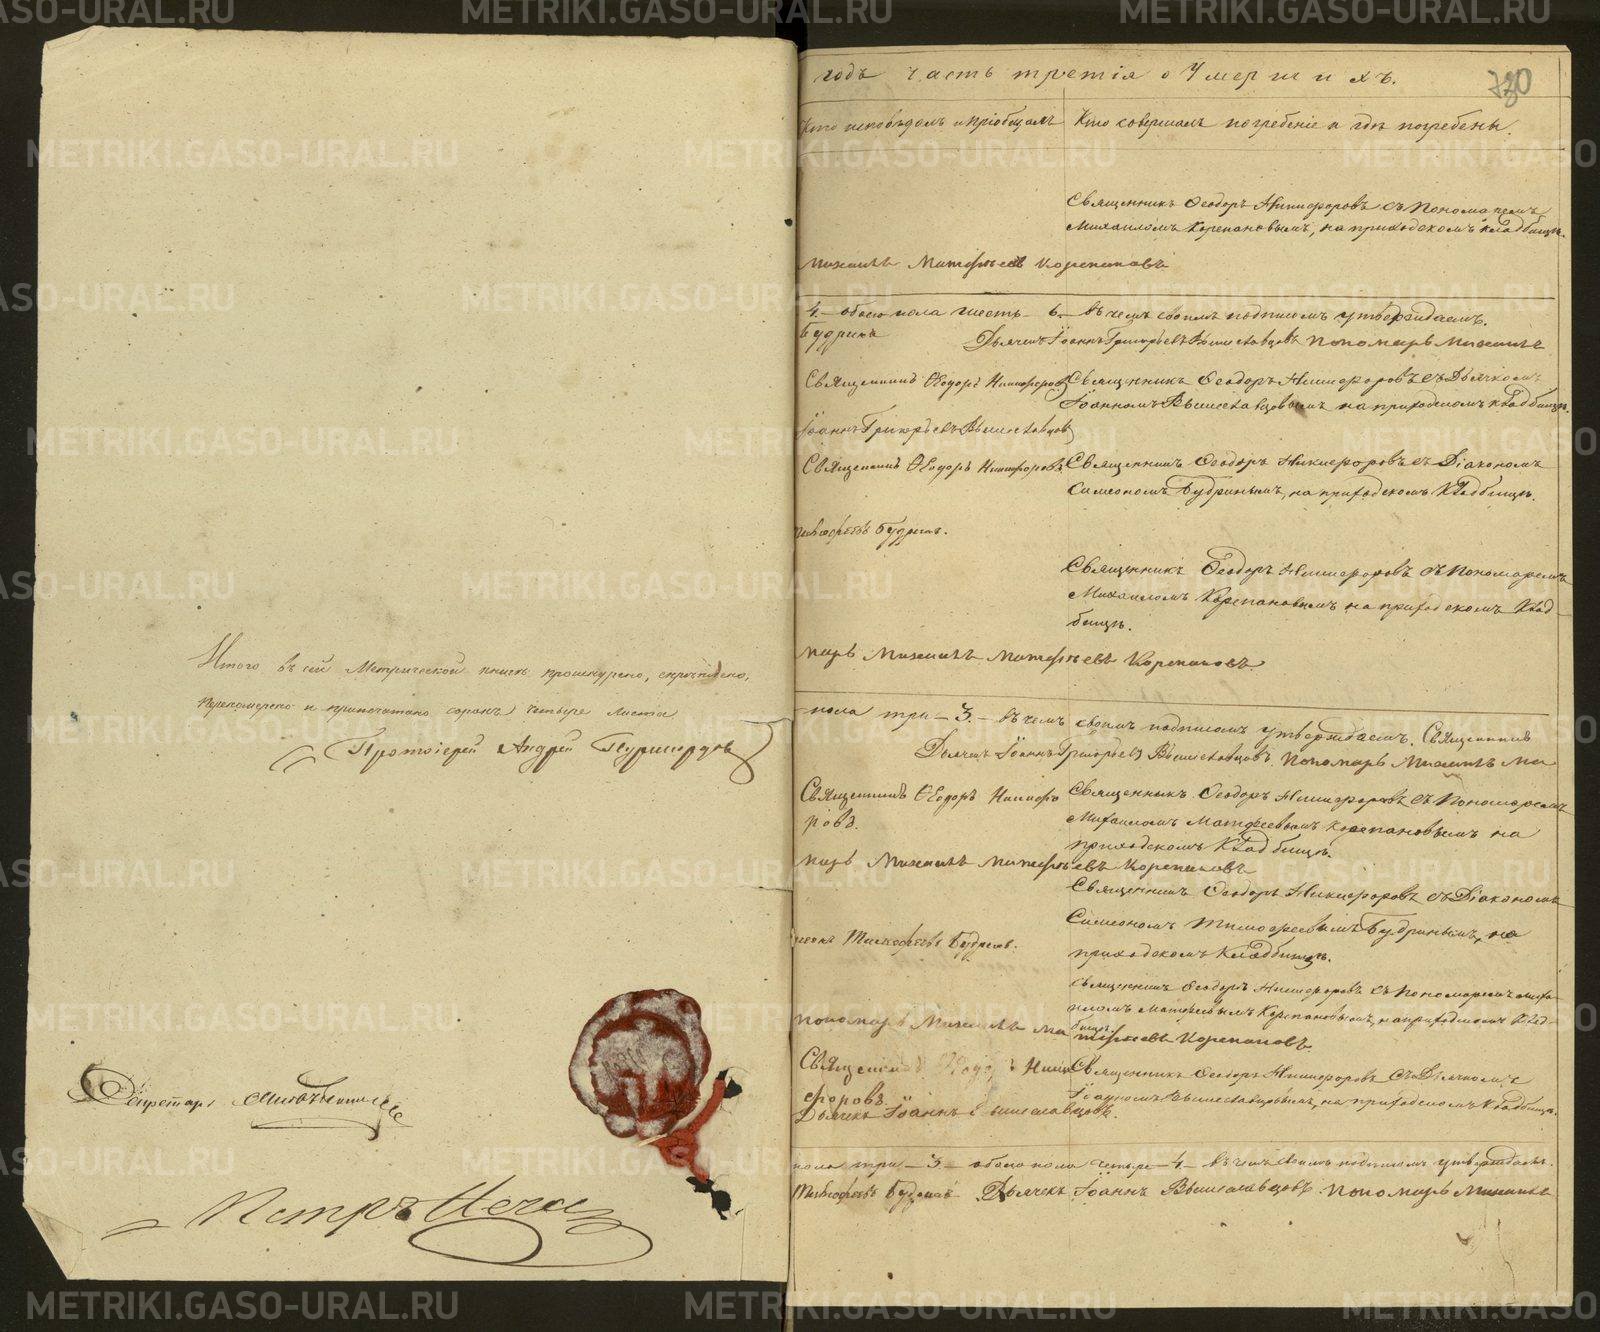 Итого въ сей Метрической книгѣ прошнурено, скрѣплено,
перенумерено и припечатано сорокъ четыре листа
Протоіерей Андрей
Секретарь
Петръ
годъ часть третія о Умершихъ.
730
Кто исповѣдалъ и пріобщалъ
Кто совершалъ погребеніе и гдѣ погребены.
Священникъ Ѳеодоръ Никифоровъ съ Пономаремъ
Михаиломъ Корепановымъ, на приходскомъ кладбищѣ.
Михаилъ Матѳѣевъ Корепановъ
4. — обоего пола шесть — 6. — въ чемъ своимъ подписомъ утверждаемъ.
Будринъ Дьячекъ Іоаннъ Григорьевъ Вышеславцовъ Пономарь Михаилъ
Священникъ Ѳеодоръ Никифоровъ
Священникъ Ѳеодоръ Никифоровъ съ Дьячкомъ
Іоанномъ Вышеславцовымъ на приходскомъ кладбищѣ.
Іоаннъ Григорьевъ Вышеславцовъ
Священникъ Ѳеодоръ Никифоровъ
Священникъ Ѳеодоръ Никифоровъ съ Діакономъ
Симеономъ Будринымъ, на приходскомъ кладбищѣ.
Будринъ.
Священникъ Ѳеодоръ Никифоровъ съ Пономаремъ
Михаиломъ Корепановымъ на приходскомъ клад-
бищѣ.
марь Михаилъ Матѳѣевъ Корепановъ
пола три — 3. — въ чемъ своимъ подписомъ утверждаемъ. Священникъ
Дьячекъ Іоаннъ Григорьевъ Вышеславцовъ Пономарь Михаилъ Ма
Священникъ Ѳеодоръ Никифо
ровъ.
Священникъ Ѳеодоръ Никифоровъ съ Пономаремъ
Михаиломъ Матфеевымъ Корепановымъ на
приходскомъ кладбищѣ.
марь Михаилъ Матѳѣевъ Корепановъ
Священникъ Ѳеодоръ Никифоровъ съ Діакономъ
Симеономъ Тимофеевымъ Будринымъ, на
приходскомъ кладбищѣ.
Тимофеевъ Будринъ.
Священникъ Ѳеодоръ Никифоровъ съ Пономаремъ Миха-
иломъ Матфеевымъ Корепановымъ, на приходскомъ клад-
бищѣ.
Пономарь Михаилъ Матѳѣевъ Корепановъ
Священникъ Ѳеодоръ Ники
форовъ
Священникъ Ѳеодоръ Никифоровъ съ Дьячкомъ
Іоанномъ Вышеславцовымъ, на приходскомъ кладбищѣ.
Дьячекъ Іоаннъ Вышеславцовъ.
пола три — 3. — обоего пола четыре — 4. — въ чемъ своимъ подписомъ утверждаемъ.
Тимофеевъ Будринъ Дьячекъ Іоаннъ Вышеславцовъ Пономарь Михаилъ
METRIKI.GASO-URAL.RU